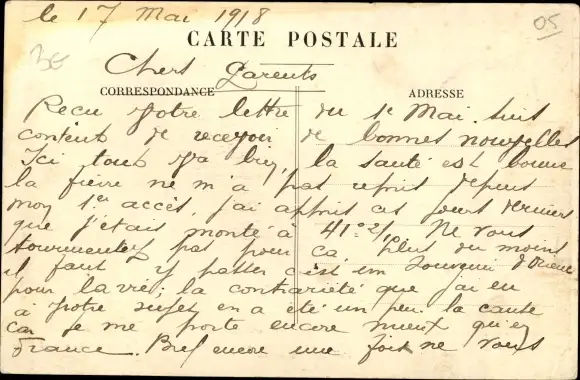 le 17 Mai 1918
05
CARTE POSTALE
Chers Parents
CORRESPONDANCE
ADRESSE
Recu votre lettre du 1e Mai. suis
content de recevoir de bonnes nouvelles
Ici tout va bien, la santé est bonne
la fievre ne m'a pas repris depuis
mon 1er accès, j'ai appris ces jours derniers
que j'étais monté à 41°2/. Ne vous
tourmentez pas pour ça, plus ou moins
il faut y passer c'est un souvenir d'Orient
pour la vie; la contrariété que j'ai eu
à votre sujet en a été un peu la cause
car je me porte encore mieux qu'en
France. Bref encore une fois ne vous